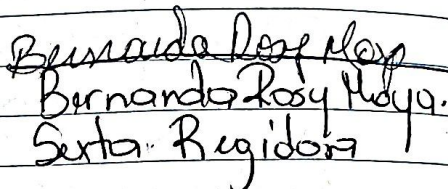 Bernarda Rosy Moya
Bernarda Rosy Moya.
Sexta Regidora